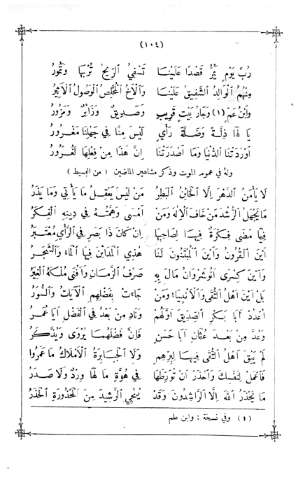 (١٠٤)
رُبَّ يَوْمٍ يَمُرُّ قَصْدًا عَلَيْنَا تَسْفِي الرِّيحُ تُرْبَهَا وَتَمُورُ
مِنْهُمُ الْوَالِدُ الشَّفِيقُ عَلَيْنَا وَالْأَخُ الْمُخْلِصُ الْوَصُولُ الْأَثِيرُ
وَابْنُ عَمٍّ (١) وَجَارُ بَيْتٍ قَرِيبٍ وَصَدِيقٌ وَزَائِرٌ وَمَزُورُ
يَا لَهَا ذِلَّةً وَضِلَّةَ رَأْيٍ لَيْسَ مِنَّا فِي جَهْلِنَا مَعْذُورُ
أَوْرَدَتْنَا الدُّنْيَا وَمَا أَصْدَرَتْنَا إِنَّ هٰذَا مِنْ فِعْلِهَا لَغُرُورُ
وله في عموم الموت وذكر مشاهير الماضين (من البسيط)
لَا يَأْمَنُ الدَّهْرَ إِلَّا الْخَائِنُ الْبَطِرُ مَنْ لَيْسَ يَعْقِلُ مَا يَأْتِي وَمَا يَذَرُ
مَا يَجْهَلُ الرُّشْدَ مَنْ خَافَ الْإِلٰهَ وَمَنْ أَمْسَى وَهِمَّتُهُ فِي دِينِهِ الْفِكَرُ
فِيمَا مَضَى فِكْرَةٌ فِيهَا لِصَاحِبِهَا إِنْ كَانَ ذَا بَصَرٍ فِي الرَّأْيِ مُعْتَبَرُ
أَيْنَ الْقُرُونُ وَأَيْنَ الْمُبْتَنُونَ لَنَا هٰذِي الْمَدَائِنَ فِيهَا الْمَاءُ وَالشَّجَرُ
وَأَيْنَ كِسْرَى أَنُوشِرْوَانُ مَالَ بِهِ صَرْفُ الزَّمَانِ وَأَفْنَى مُلْكَهُ الْغِيَرُ
بَلْ أَيْنَ أَهْلُ التُّقَى وَالْأَنْبِيَاءُ وَمَا جَاءَتْ بِفَضْلِهِمِ الْآيَاتُ وَالسُّوَرُ
أُعْدُدْ أَبَا بَكْرٍ الصِّدِّيقَ أَوَّلَهُمْ وَنَادِ مِنْ بَعْدِهِ فِي الْفَضْلِ أَيَا عُمَرُ
وَعُدَّ مِنْ بَعْدِ عُثْمَانٍ أَبَا حَسَنٍ فَإِنَّ فَضْلَهُمَا يُرْوَى وَيُذَّكَرُ
لَمْ يَبْقَ أَهْلُ التُّقَى فِيهَا لِبِرِّهِمِ وَلَا الْجَبَابِرَةُ الْأَمْلَاكُ مَا عَمَرُوا
فَاعْمَلْ لِنَفْسِكَ وَاحْذَرْ أَنْ تُوَرِّطَهَا فِي هُوَّةٍ مَا لَهَا وِرْدٌ وَلَا صَدَرُ
مَا يَحْذَرُ اللهَ إِلَّا الرَّاشِدُونَ وَقَدْ يُنْجِي الرَّشِيدَ مِنَ الْمَحْذُورَةِ الْحَذَرُ
(١) وفي نسخة: وابن